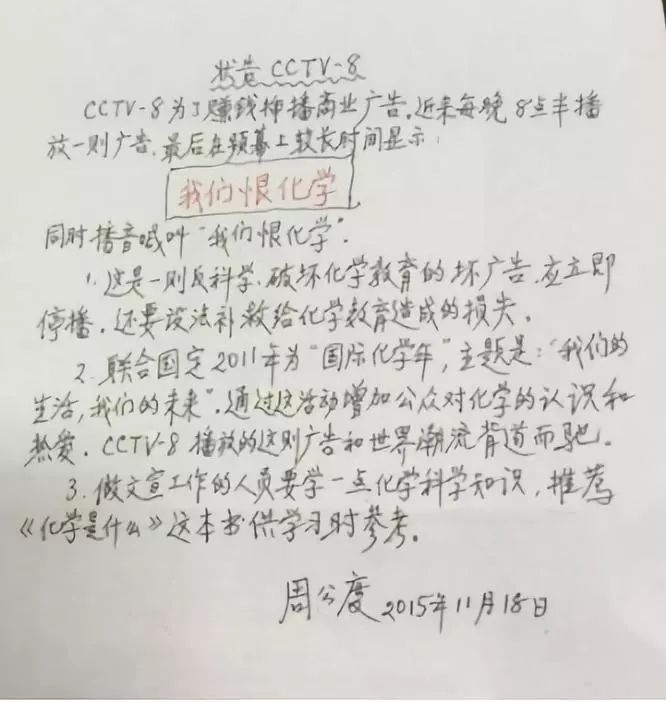 状告 CCTV-8
CCTV-8为了赚钱插播商业广告。近来每晚8点半播
放一则广告,最后在频幕上较长时间显示:
我们恨化学
同时播音喊叫“我们恨化学”.
1. 这是一则反科学、破坏化学教育的坏广告.应立即
停播.还要设法补救给化学教育造成的损失.
2. 联合国定2011年为“国际化学年”,主题是:“我们的
生活,我们的未来”.通过这活动增加公众对化学的认识和
热爱.CCTV-8播放的这则广告和世界潮流背道而驰.
3. 做文宣工作的人员要学一点化学科学知识,推荐
《化学是什么》这本书供学习时参考.
周公度 2015年11月18日